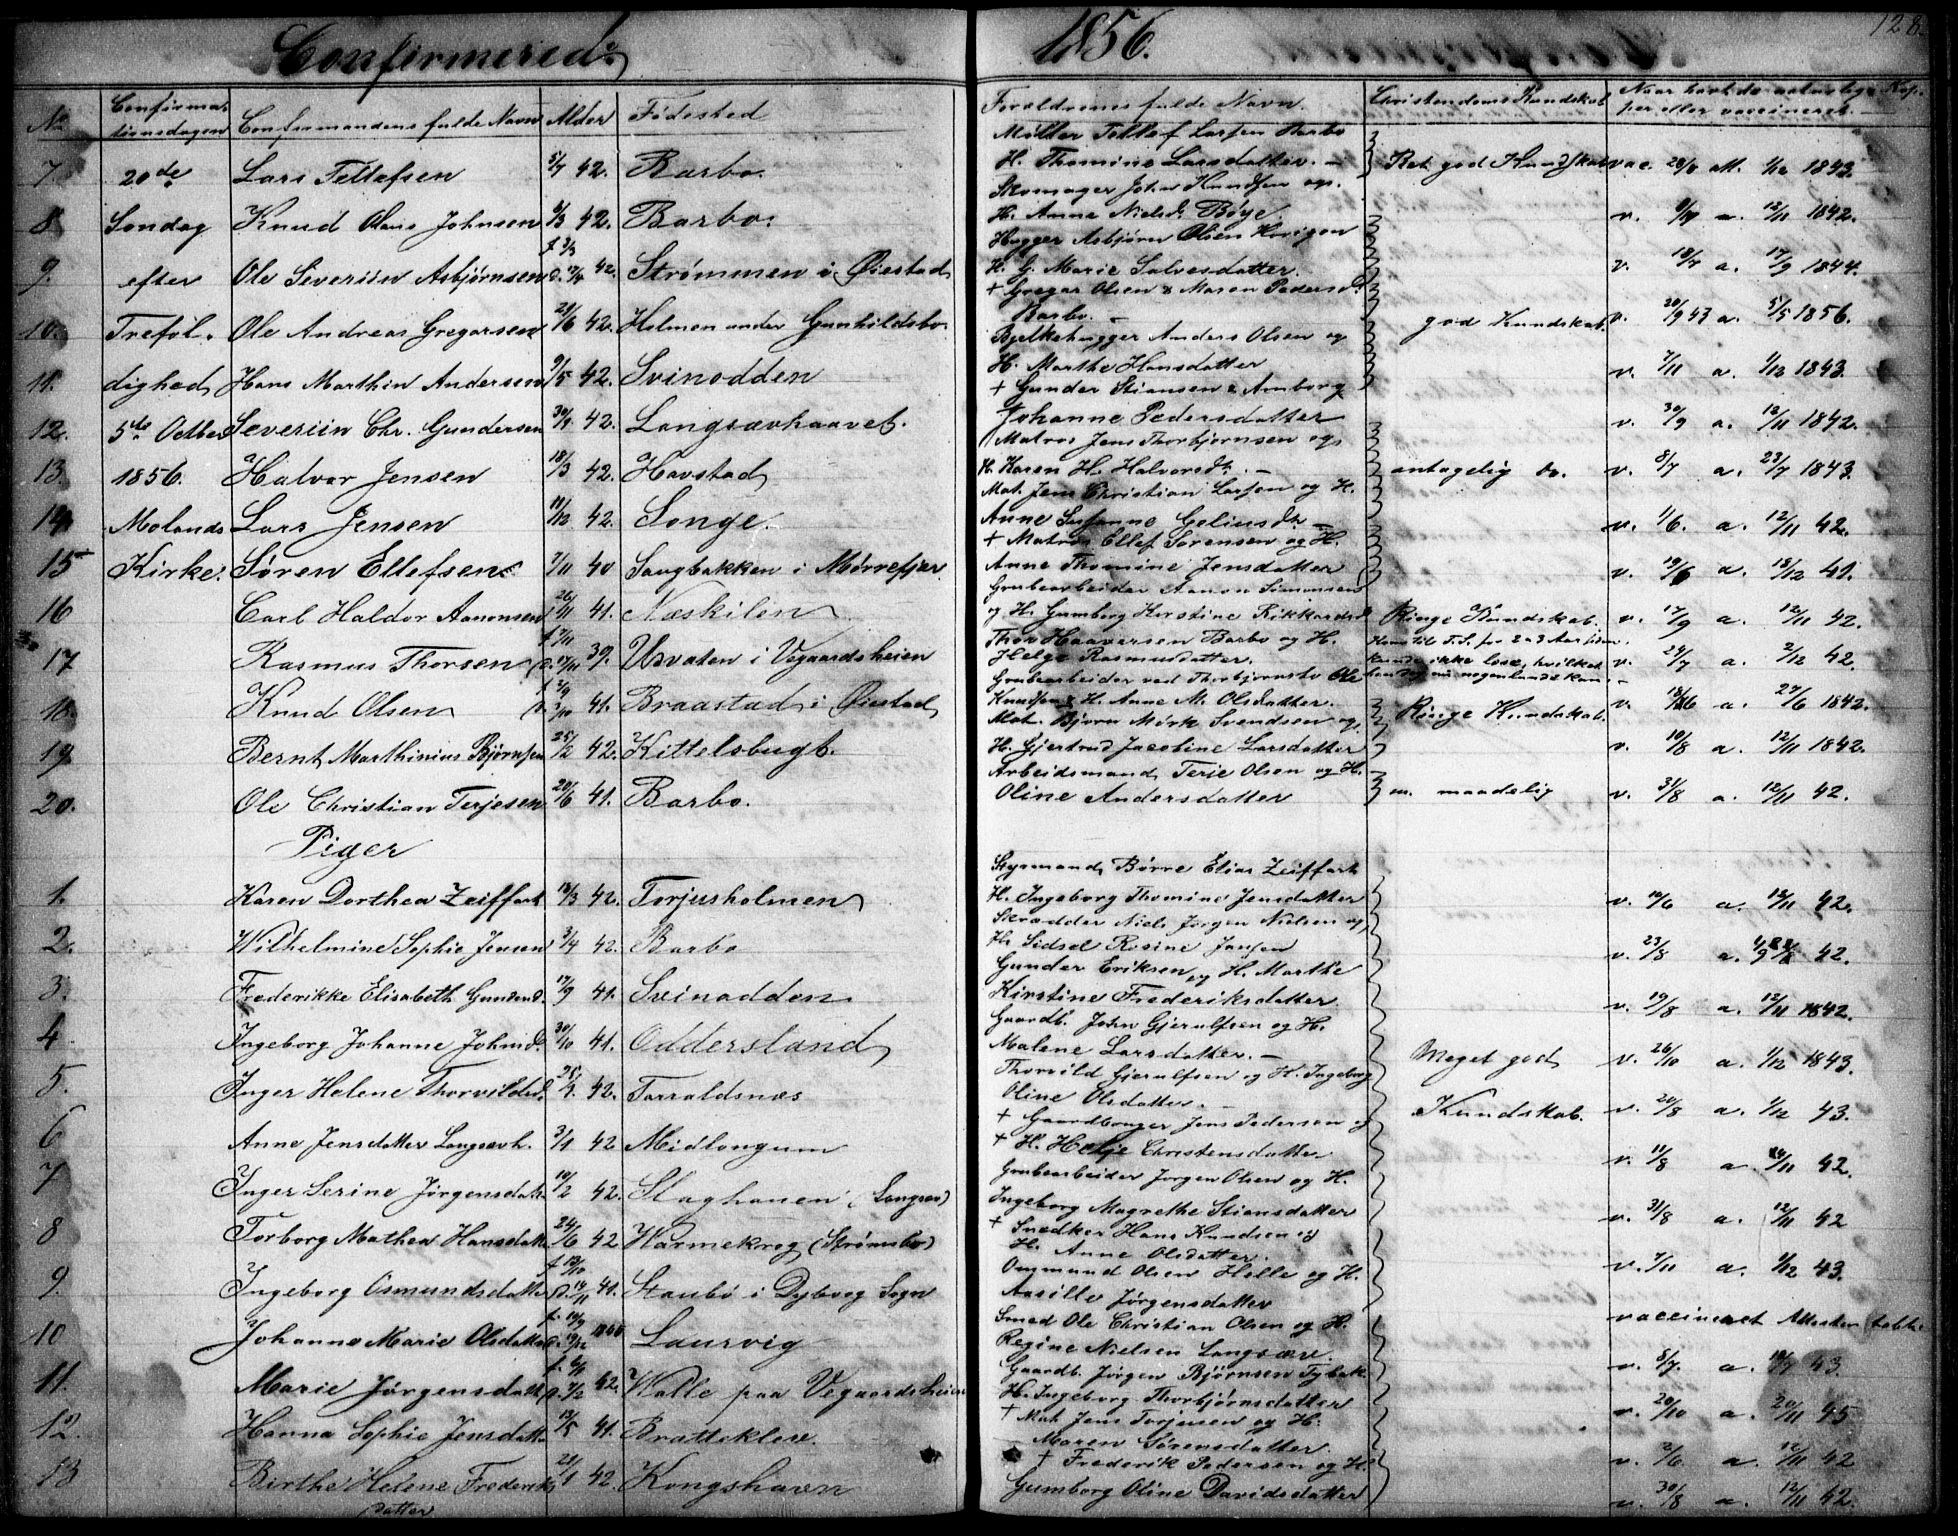 Confirmerede 1856. 128
No Confirmationsdagen Confirmandens fulde Navn Alder Fødested Foraldrenes fulde Navn. Christendoms Kundskab Naar havt de naturlige Kopper eller vaccineret.
7. 20de Lars Tellefsen 5/7 42. Barbo. Møller Tellef Larsen Barbo
H. Thomine Larsdatter. Ret god Kundskab vac. a. 1/12 1843.
8 Søndag Knud Olaus Johnsen 6/3 42. Barbo. Skomager John Knudsen og
H. Anne Nielsd. Bøye. v. a. 12/11 1842.
9. efter Ole Severiin Asbjørnsen f. 3/3 d. 17/4 42. Strømmen i Øiestad Hugger Asbjørn Olsen
H. G. Marie Salvesdatter. v. 18/7 a. 17/9 1844.
10. Trefol- Ole Andreas Gregersen 21/6 42. Holmen under Gunhildsbo + Gregar Olsen & Maren Pedersd.
Barbo. god Kundskab v. 20/9 43 a. 5/5 1856.
11. dighed Hans Marthin Andersen 9/5 42. Svinodden Bjelkehugger Anders Olsen og
H. Marthe Hansdatter v. 7/11 a. 1/12 1843.
12. 5te Octber Severiin Chr. Gundersen 30/1 42. Langsævhaavet. + Gunder Stiansen & Amborg
Johanne Pedersdatter v. 30/9 a. 12/11 1842.
13. 1856. Halvor Jensen 18/3 42. Havstad Matros Jens Thorbjørnsen og
H. Karen H. Halvorsd. antagelig do. v. 8/7 a. 23/7 1843.
14 Molands Lars Jensen 11/12 42. Songe. Mat. Jens Christian Larsen og H.
Anne Susanne Geliusd. v. 1/6. a. 12/11 42.
15 Kirke. Søren Ellefsen 7/11 40 Saugbakken i Mørrefjær + Matros Ellef Sørensen og H.
Anne Thomine Jensdatter v. 19/6 a. 18/12 41.
16 Carl Haldor Aanonsen 26/11 41. Næskilen Grubearbeider Aanon Simonsen
og H. Gumborg Kirstine Rikkardsd. Ringe Kundskab. v. 17/9 a. 12/11 42.
17 Rasmus Thorsen f. 7/11 d. 17/11 39. Usvaten i Vegaardsheien Thor Haaversen Barbo og H.
Helge Rasmusdatter. kunde ikke læse, hvilket v. 24/7 a. 2/12 42.
18. Knud Olsen f. 2/9 d. 3/10 41. Braastad i Øiestad Grubearbeider ved Thorbjørnsbo Ole
Knudsen & H. Anne M. Olsdatter. Ringe Kundskab. v. a. 27/6 1842.
19. Bernt Marthinius Bjørnsen 25/2 42. Kittelsbugt. Mat. Bjørn Mørk Svendsen og
H. Gjertrud Jacobine Larsdatter v. 10/8 a. 12/11 1842.
20. Ole Christian Terjesen 20/6 41. Barbo. Arbeidsmand Terje Olsen og H.
Oline Andersdatter m. maadelig v. 31/8 a. 12/11 42.
Piger
1. Karen Dorthea Zeiffart 13/3 42. Torjusholmen Styrmand Børre Elias Zeiffart
H. Ingeborg Thomine Jensdatter v. 10/6 a. 12/11 42.
2. Wilhelmine Sophie Jensen 3/4 42. Barbo Skrædder Niels Jørgen Nielsen og
H. Sidsel Rosine Jansen v. 23/8 a. 42.
3. Frederikke Elisabeth Gundersd. 17/9 41. Svinodden Gunder Eriksen og H. Marthe
Kirstine Frederiksdatter v. 19/8 a. 12/11 1842.
4 Ingeborg Johanne Johnsd. 30/10 41. Oddersland Gaardb. John Gjerulfsen og H.
Malene Larsdatter. Meget god v. 26/10 a. 1/12 1843.
5. Inger Helene Thorvildsd. 25/9. 42. Torraldsnæs Thorvild Gjerulfsen og H. Ingeborg
Oline Olsdatter. Kundskab. v. 20/8 a. 1/12 43.
6 Anne Jensdatter Langsævh. 3/1 42 Midlongum + Gaardbruger Jens Pedersen og
+ H. Helje Christensdatter v. 11/8 a. 42.
7 Inger Serine Jørgensdat. 10/2 42. Slaghanen (Langsæv) Grubearbeider Jørgen Olsen og H.
Ingeborg Magrethe Stiansdatter v. 31/8 a. 12/11 42
8 Torborg Mathea Hansdatt. 24/6 42 Warmekrog (Strømsbo) + Snedker Hans Knudsen og
H. Anne Olsdatter. v. 7/11 a. 1/12 43.
9. Ingeborg Osmundsdatter f. 12/10 d. 14/11 41. Staubø i Dybvog Sogn Ongmund Olsen Helle og H.
Aasille Jørgensdatter vaccineret Attesten tabt.
10 Johanne Marie Olsdatt. Laurvig Smed Ole Christian Olsen og H.
Regine Nielsen Langsæv. v. 5/7. a. 43.
11. Marie Jørgensdatt. 42. Walle paa Vegaardsheien Gaardb. Jørgen Bjørnsen Fybak
H. Ingeborg Thorbjørnsdatter v. 20/10 a. 20/11 45
12. Hanna Sophie Jensdatt. 13/5 41. Bratteklev. + Mat. Jens Torjusen og H.
Maren Sørensdatter. v. 2/6 a. 12/11 42
13 Birthe Helene Frederiks 21/1 42. Kongshavn + Frederik Pedersen og H.
datter Gumborg Oline Davidsdatter v. 30/8 a. 12/11 42.